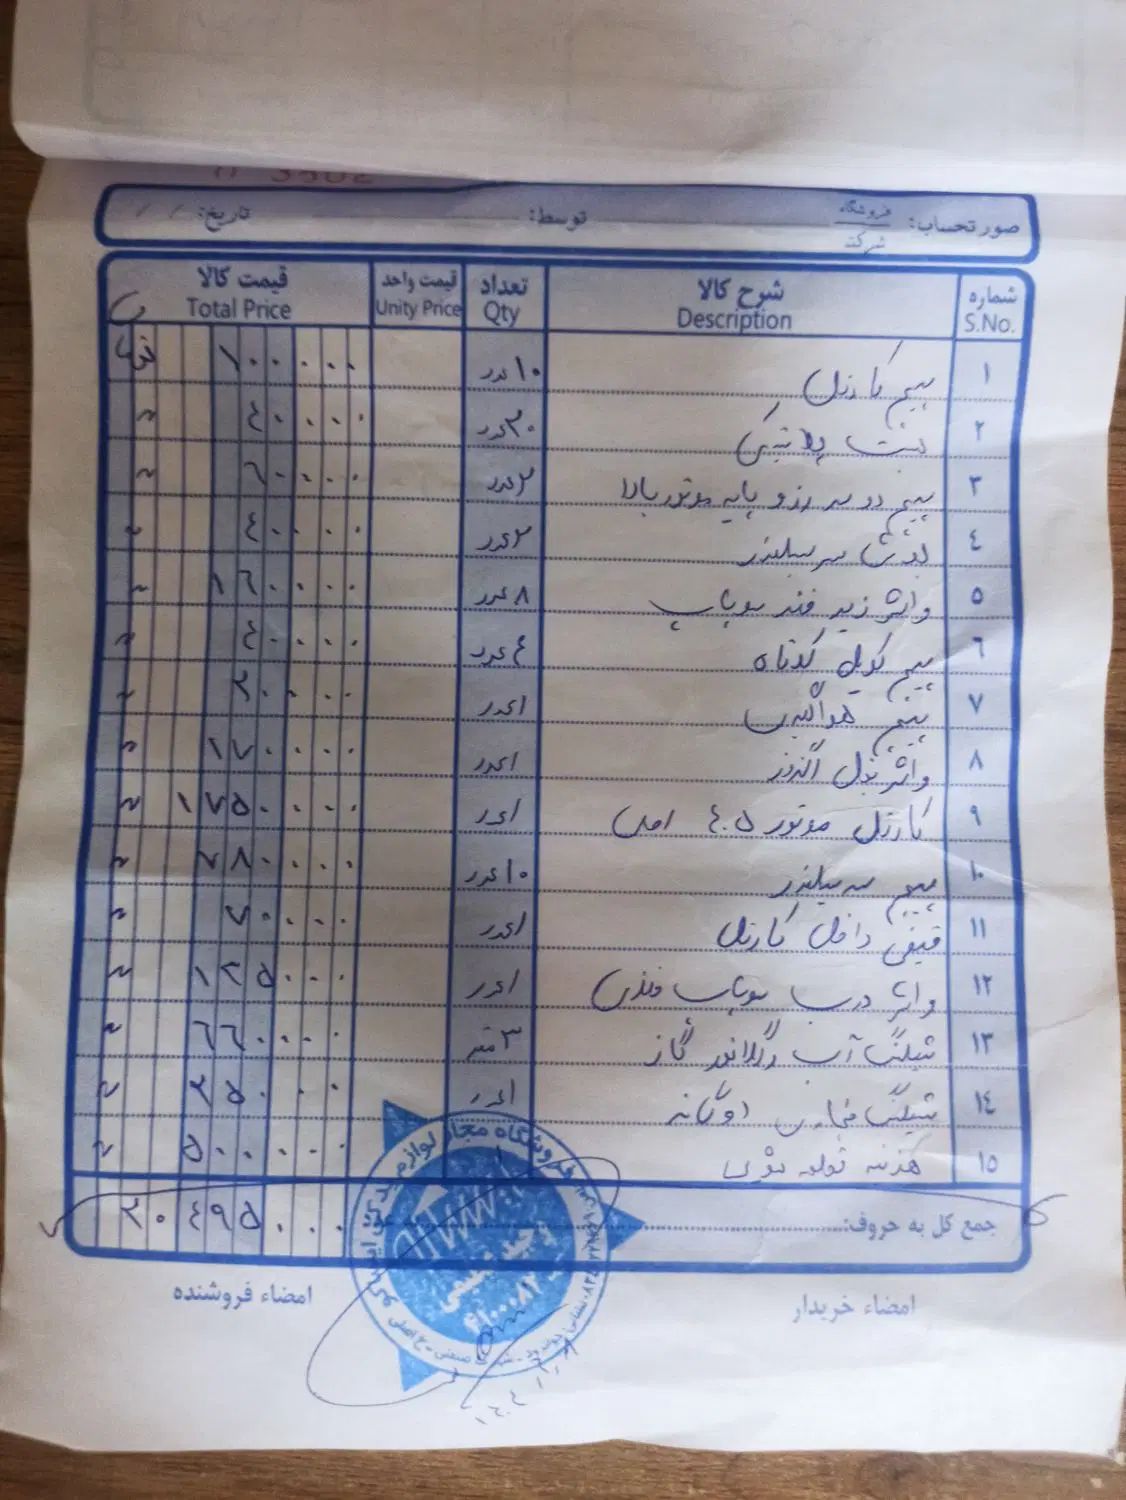 صورتحساب: فروشگاه شرکت توسط: تاریخ: / /
شماره S.No. شرح کالا Description تعداد Qty قیمت واحد Unity Price قیمت کالا Total Price
۱ پیچ کارتل ۱۰ عدد ۱۰۰۰۰۰۰
۲ بست پلاستیکی ۲۰ عدد ۴۰۰۰۰۰ "
۳ پیچ دو سر رزو پایه موتور بالا ۲ عدد ۶۰۰۰۰۰ "
۴ بوش سرسیلندر ۲ عدد ۴۰۰۰۰۰ "
۵ واشر زیر فنر سوپاپ ۸ عدد ۱۶۰۰۰۰۰ "
۶ پیچ کویل کوتاه ۴ عدد ۴۰۰۰۰۰ "
۷ پیچ هواگیری ۱ عدد ۲۰۰۰۰۰ "
۸ واشر اگزوز ۱ عدد ۱۷۰۰۰۰۰ "
۹ کارتل موتور ۴۰۵ اصلی ۱ عدد ۱۷۵۰۰۰۰۰ "
۱۰ پیچ سرسیلندر ۱۰ عدد "
۱۱ قیفی داخل کارتل ۱ عدد ۷۰۰۰۰۰ "
۱۲ واشر درب سوپاپ فلزی ۱ عدد "
۱۳ شیلنگ آب رگلاتور گاز ۳ متر ۶۶۰۰۰۰۰ "
۱۴ شیلنگ بخاری ۱ عدد "
۱۵ هزینه ۵۰۰۰۰۰۰ "
جمع کل به حروف:
امضاء خریدار امضاء فروشنده
فروشگاه مجاز لوازم یدکی